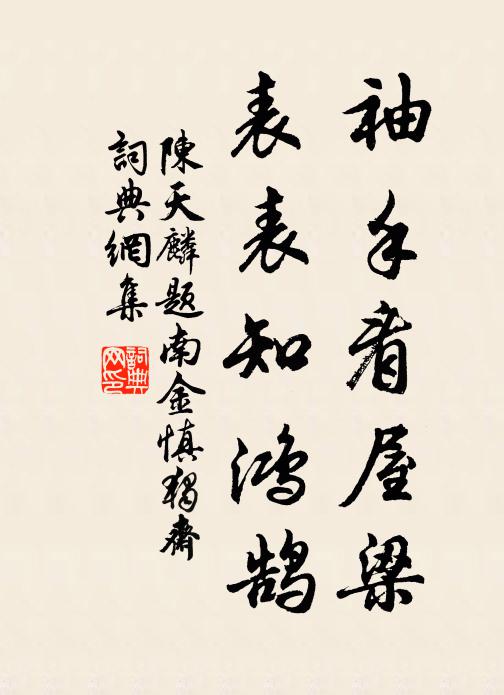 袖手看屋梁
表表知鴻鵠
陳天麟題南金慎獨齋
詞典網集
詞典网印